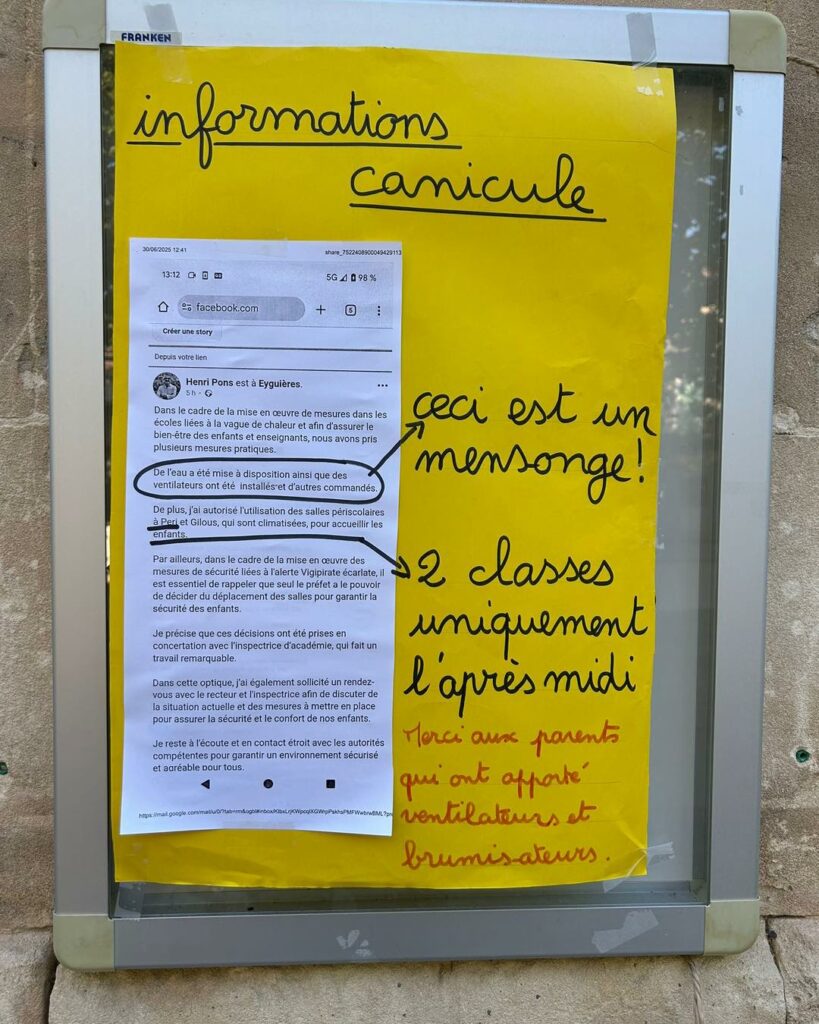 FRANKEN
informations
canicule
30/06/2025 12:41
share_7522408900049429113
13:12
5G 98 %
facebook.com
5
Créer une story
Depuis votre lien
Henri Pons est à Eyguières.
5 h
Dans le cadre de la mise en œuvre de mesures dans les
écoles liées à la vague de chaleur et afin d'assurer le
bien-être des enfants et enseignants, nous avons pris
plusieurs mesures pratiques.
De l'eau a été mise à disposition ainsi que des
ventilateurs ont été installés et d'autres commandés.
De plus, j'ai autorisé l'utilisation des salles périscolaires
à Peri et Gilous, qui sont climatisées, pour accueillir les
enfants.
Par ailleurs, dans le cadre de la mise en œuvre des
mesures de sécurité liées à l'alerte Vigipirate écarlate, il
est essentiel de rappeler que seul le préfet a le pouvoir
de décider du déplacement des salles pour garantir la
sécurité des enfants.
Je précise que ces décisions ont été prises en
concertation avec l'inspectrice d'académie, qui fait un
travail remarquable.
Dans cette optique, j'ai également sollicité un rendez-
vous avec le recteur et l'inspectrice afin de discuter de
la situation actuelle et des mesures à mettre en place
pour assurer la sécurité et le confort de nos enfants.
Je reste à l'écoute et en contact étroit avec les autorités
compétentes pour garantir un environnement sécurisé
et agréable pour tous.
ceci est un
mensonge!
2 classes
uniquement
l'après midi
Merci aux parents
qui ont apporté
ventilateurs et
brumisateurs.